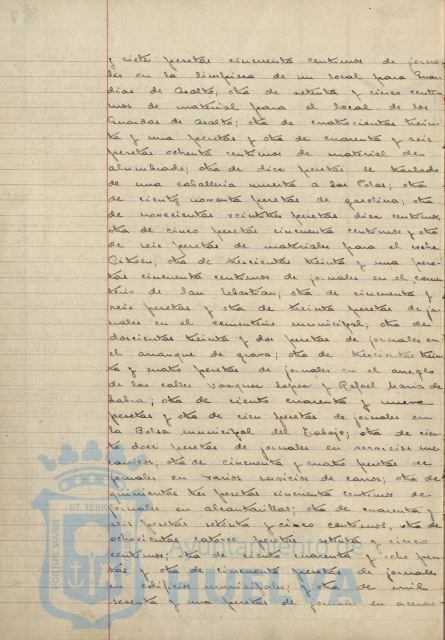 y siete pesetas cincuenta centimos de jorna-
les en la limpieza de un local para Guar-
dias de Asalto; otra de setenta y cinco centi-
mos de material para el local de los
Guardias de Asalto; otra de cuatrocientas trein-
ta y una pesetas y otra de cuarenta y seis
pesetas ochenta centimos de material de
alumbrado; otra de diez pesetas el traslado
de una caballeria muerta a los Polos; otra
de ciento noventa pesetas de gasolina; otra
de novecientas veintitres pesetas diez centimos,
otra de cinco pesetas cincuenta centimos y otra
de seis pesetas de materiales para el coche
Citroen; otra de trescientas treinta y una pese-
tas cincuenta centimos de jornales en el cemen-
terio de San Sebastian; otra de cincuenta y
seis pesetas y otra de treinta pesetas de jor-
nales en el cementerio municipal; otra de
doscientas treinta y dos pesetas de jornales en
el arranque de grava; otra de trescientas trein-
ta y cuatro pesetas de jornales en el arreglo
de las calles Vazquez Lopez y Rafael Maria de
Labra; otra de ciento cuarenta y nueve
pesetas y otra de cien pesetas de jornales en
la Bolsa municipal del Trabajo; otra de cien-
to doce pesetas de jornales en servicios me-
canicos; otra de cincuenta y cuatro pesetas de
jornales en varios servicios de carros; otra de
quinientas tres pesetas cincuenta centimos de
jornales en alcantarillas; otra de cuarenta y
seis pesetas setenta y cinco centimos, otra de
ochocientas catorce pesetas setenta y cinco
centimos; otra de ciento cuarenta y ocho pese-
tas y otra de cincuenta pesetas de jornales
en edificios municipales; y otra de mil
sesenta y una pesetas de jornales en aceras
PORTUS MARIS
ET TERRE
Ayuntamiento de
HUELVA